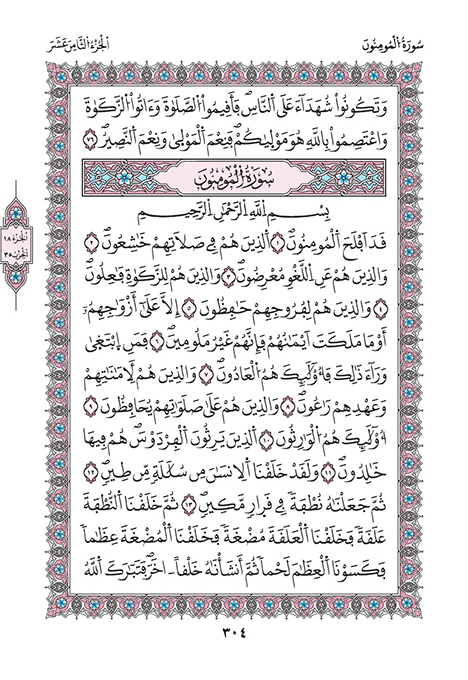 سُورَةُ اُلْمُومِنُونَ
اَلْجُزْءُ الثَّامِنَ عَشَرَ
وَتَكُونُواْ شُهَدَآءَ عَلَى اَلنَّاسِ فَأَقِيمُواْ اُلصَّلَوٰةَ وَءَاتُواْ اُلزَّكَوٰةَ
وَاعْتَصِمُواْ بِاللَّهِ هُوَ مَوْلَيٰكُمْ فَنِعْمَ اَلْمَوْلَىٰ وَنِعْمَ اَلنَّصِيرُ ٧٦
سُورَةُ اُلْمُومِنُونَ
بِسْمِ اِللَّهِ اِلرَّحْمَٰنِ اِلرَّحِيمِ
قَدَ اَفْلَحَ اَلْمُومِنُونَ ١ اَلذِينَ هُمْ فِي صَلَاتِهِمْ خَٰشِعُونَ ٢
وَالذِينَ هُمْ عَنِ اِللَّغْوِ مُعْرِضُونَ ٣ وَالذِينَ هُمْ لِلزَّكَوٰةِ فَٰعِلُونَ
٤ وَالذِينَ هُمْ لِفُرُوجِهِمْ حَٰفِظُونَ ٥ إِلَّا عَلَىٰ أَزْوَٰجِهِمُۥٓ
أَوْ مَا مَلَكَتَ اَيْمَٰنُهُمْ فَإِنَّهُمْ غَيْرُ مَلُومِينَ ٦ فَمَنِ اِبْتَغَىٰ
وَرَآءَ ذَٰلِكَ فَأُوْلَٰٓئِكَ هُمُ اُلْعَادُونَ ٧ وَالذِينَ هُمْ لِأَمَٰنَٰتِهِمْ
وَعَهْدِهِمْ رَٰعُونَ ٨ وَالذِينَ هُمْ عَلَىٰ صَلَوَٰتِهِمْ يُحَافِظُونَ ٩
أُوْلَٰٓئِكَ هُمُ اُلْوَٰرِثُونَ ١٠ اَلذِينَ يَرِثُونَ اَلْفِرْدَوْسَ هُمْ فِيهَا
خَٰلِدُونَ ١١ وَلَقَدْ خَلَقْنَا اَلِانسَٰنَ مِن سُلَٰلَةٍ مِّن طِينٍ ١٢
ثُمَّ جَعَلْنَٰهُ نُطْفَةً فِي قَرَارٍ مَّكِينٍ ١٣ ثُمَّ خَلَقْنَا اَلنُّطْفَةَ
عَلَقَةً فَخَلَقْنَا اَلْعَلَقَةَ مُضْغَةً فَخَلَقْنَا اَلْمُضْغَةَ عِظَٰماً
فَكَسَوْنَا اَلْعِظَٰمَ لَحْماً ثُمَّ أَنشَأْنَٰهُ خَلْقاً ـ اخَرَ فَتَبَٰرَكَ اَللَّهُ
الجزء ١٨
الحزب ٣٥
٣٠٤